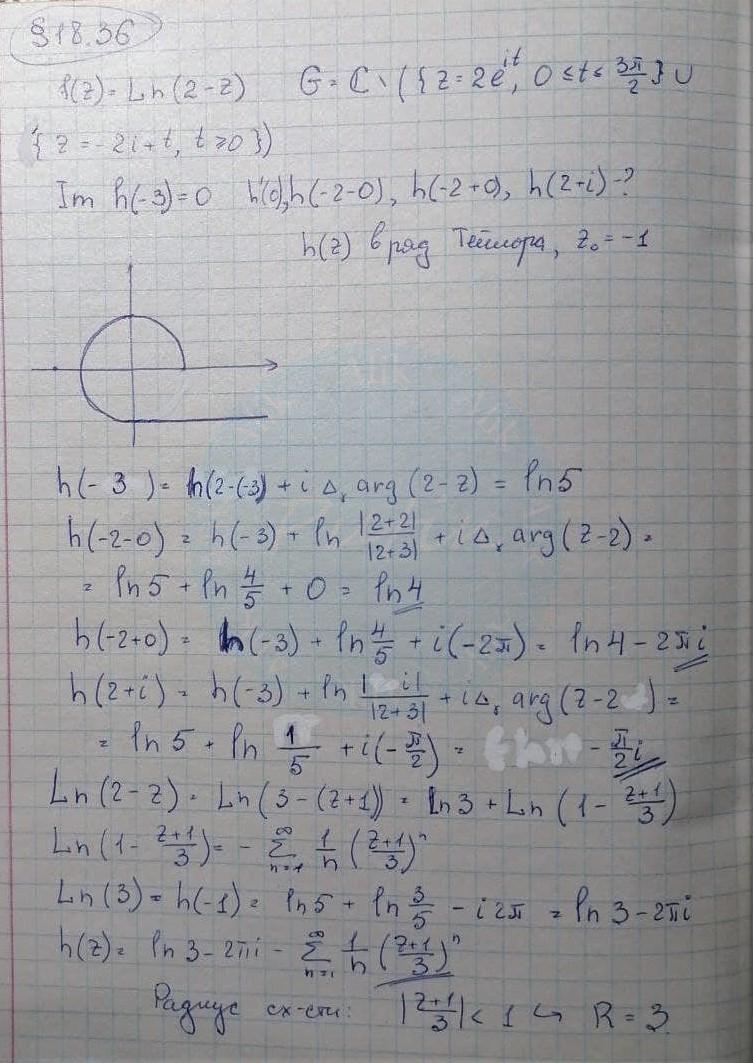 §18.36
f(z) = Ln(2-z) G = ℂ \ ({z = 2e^{it}, 0 ≤ t ≤ 3π/2} ∪
{z = -2i+t, t ≥ 0})
Im h(-3) = 0 h'(0), h(-2-0), h(-2+0), h(2+i) - ?
h(z) в ряд Тейлора, z₀ = -1
h(-3) = h(2-(-3) + i Δ_γ arg(2-z) = ln5
h(-2-0) = h(-3) + ln |2+2|/|2+3| + i Δ_γ arg(z-2) =
= ln5 + ln 4/5 + 0 = ln4
h(-2+0) = h(-3) + ln 4/5 + i(-2π) = ln4 - 2πi
h(2+i) = h(-3) + ln | i|/|2+3| + i Δ_γ arg(z-2 ) =
= ln5 + ln 1/5 + i(-π/2) = - π/2 i
Ln(2-z) = Ln(3-(z+1)) = ln3 + Ln(1 - (z+1)/3)
Ln(1 - (z+1)/3) = - ∑_{n=1}^{∞} 1/n ((z+1)/3)^n
Ln(3) = h(-1) = ln5 + ln 3/5 - i2π = ln3 - 2πi
h(z) = ln3 - 2πi - ∑_{n=1}^{∞} 1/n ((z+1)/3)^n
Радиус сх-сти: |(z+1)/3| < 1 ↪ R = 3